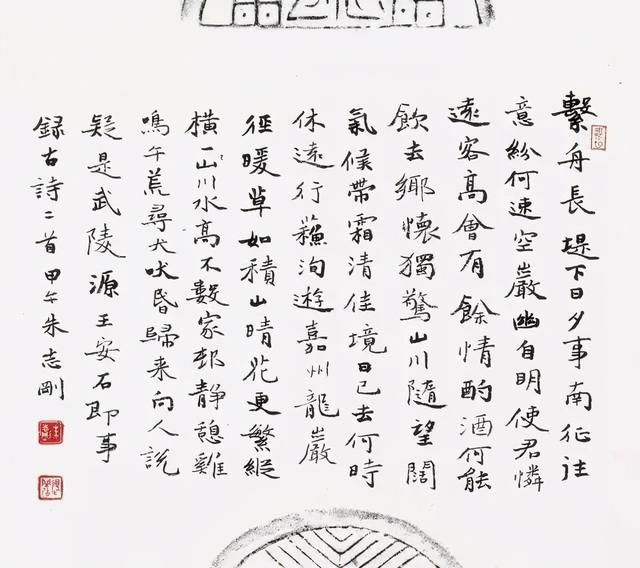 繫舟長堤下日夕事南征往
意紛何速空巖幽自明使君憐
遠客高會有餘情酌酒何能
飲去鄉懷獨驚山川隨望闊
氣候帶霜清佳境日已去何時
休遠行蘇洵遊嘉州龍巖
徑暖草如積山晴花更繁縱
橫一山川水高不數家邨静憩雞
鳴午荒尋犬吠昏歸来向人說
疑是武陵源王安石即事
録古詩二首甲午朱志剛